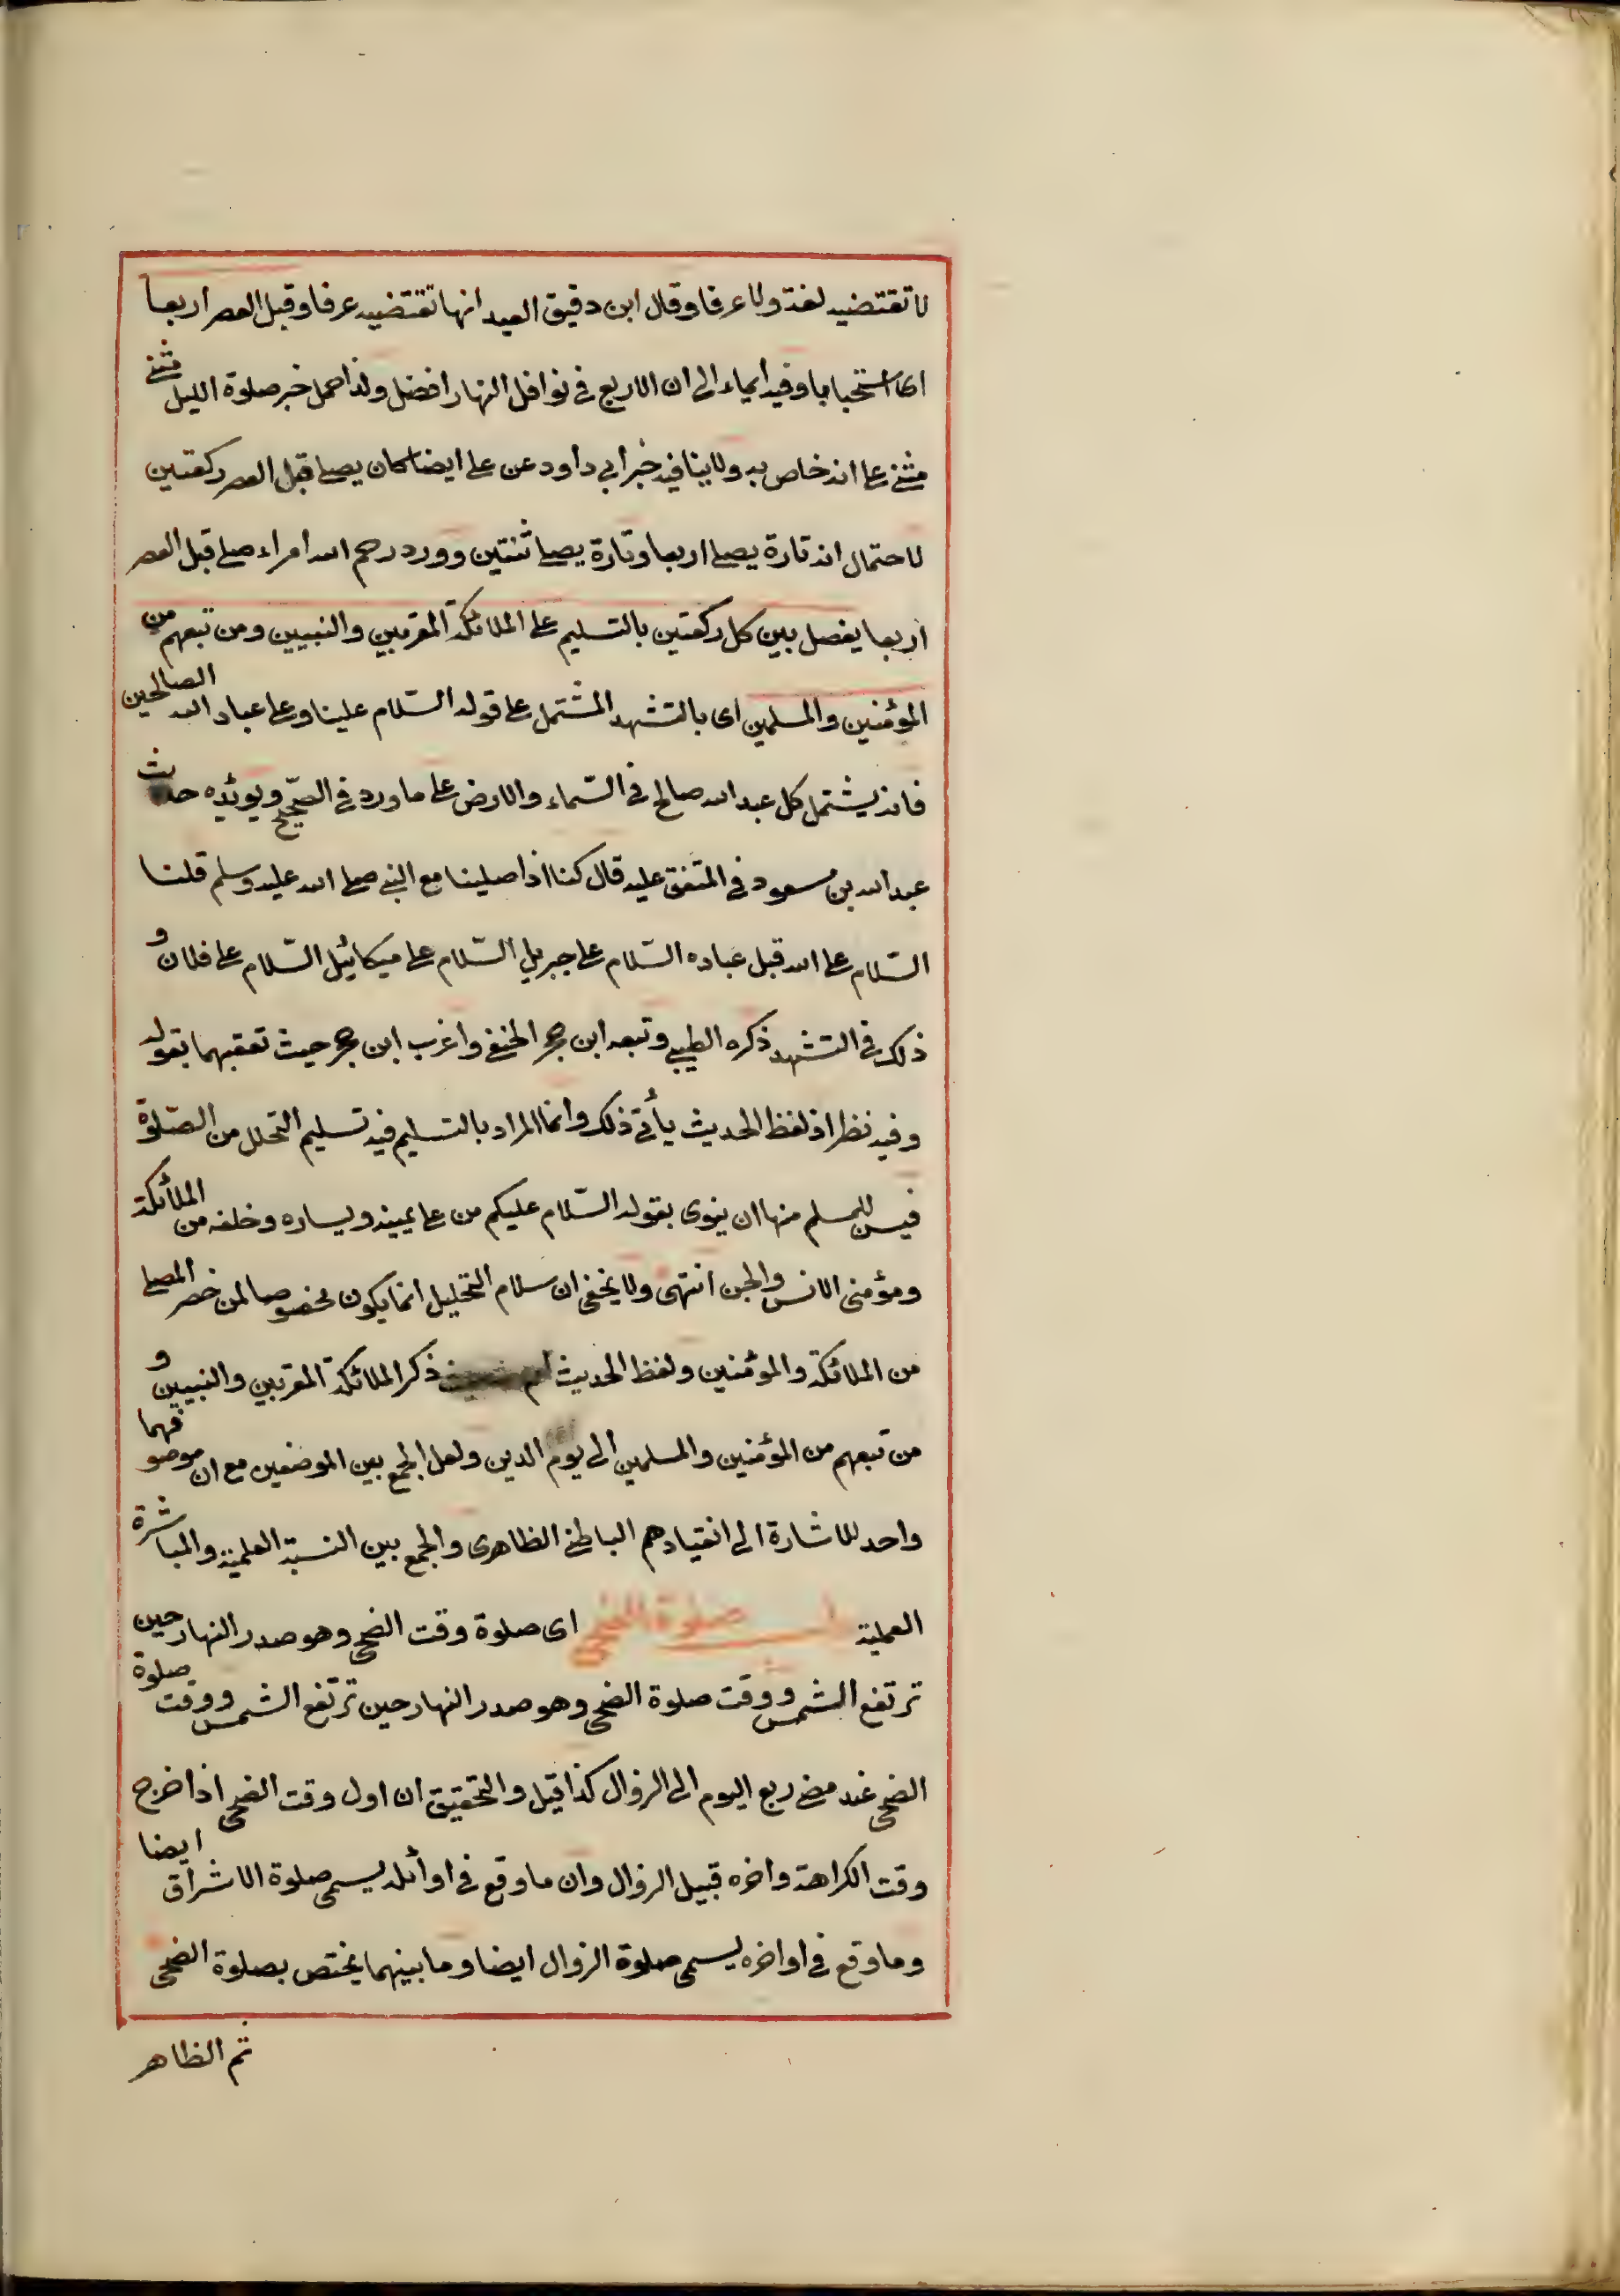 لا تقتضيه لغة ولا عرفا وقال ابن دقيق العيد انها تقتضيه عرفا وقبل العصر اربعا
اى استحبابا وفيه ايماء الى ان الاربع في نوافل النهار افضل ولذا حمل خبر صلوة الليل مثنى
مثنى على انه خاص به ولا ينافيه خبر ابي داود عن على ايضا كان يصلى قبل العصر ركعتين
لاحتمال انه تارة يصلى اربعا وتارة يصلى ثنتين وورد رحم الله امراء صلى قبل العصر
اربعا يفصل بين كل ركعتين بالتسليم على الملائكة المقربين والنبيين ومن تبعهم من
المؤمنين والمسلمين اى بالتشهد المشتمل على قوله السّلام علينا وعلى عباد الله الصالحين
فانه يشتمل كل عبد الله صالح في السّماء والارض على ما ورد في الصّحيح ويؤيده حديث
عبد الله بن مسعود في المتفق عليه قال كنا اذا صلينا مع النبي صلى الله عليه وسلم قلنا
السّلام على الله قبل عباده السّلام على جبريل السّلام على ميكائيل السّلام على فلان و
ذلك في التشهد ذكره الطيبي وتبعه ابن حجر الحنفي واغرب ابن حجر حيث تعقبهما بقوله
وفيه نظر اذ لفظ الحديث يأتى ذلك وانما المراد بالتسليم فيه تسليم التحلل من الصّلوة
فيسن للمسلم منها ان ينوى بقوله السّلام عليكم من على يمينه ويساره وخلفه من الملائكة
ومؤمنى الانس والجن انتهى ولا يخفى ان سلام التحليل انما يكون مخصوصا لمن حضر المصلى
من الملائكة والمؤمنين ولفظ الحديث ذكر الملائكة المقربين والنبيين و
من تبعهم من المؤمنين والمسلمين الى يوم الدين ولعل الجمع بين الموضعين مع ان موصوفهما
واحد للاشارة الى انقيادهم الباطني الظاهرى والجمع بين النسبة العلمية والمباشرة
العملية صلوة الضحى اى صلوة وقت الضحى وهو صدر النهار حين
ترتفع الشمس ووقت صلوة الضحى وهو صدر النهار حين ترتفع الشمس ووقت صلوة
الضحى عند مضى ربع اليوم الى الزوال كذا قيل والتحقيق ان اول وقت الضحى اذا خرج
وقت الكراهة واخره قبيل الزوال وان ما وقع في اوائله يسمى صلوة الاشراق ايضا
وما وقع في اواخره يسمى صلوة الزوال ايضا وما بينهما يختص بصلوة الضحى
ثم الظاهر